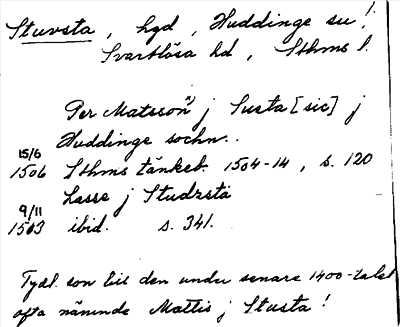 Stuvsta, hgd, Huddinge sn!
Svartlösa hd, Sthms l.
Per Matsson¹⁾ j Susta [sic] j
Huddinge sochn..
15/6
1506 Sthms tänkeb. 1504-14, s. 120
Lasse j Studzsta
9/11
1513 ibid. s. 341.
Tydl. son till den under senare 1400-talet
ofta nämnde Mattis j Stusta!